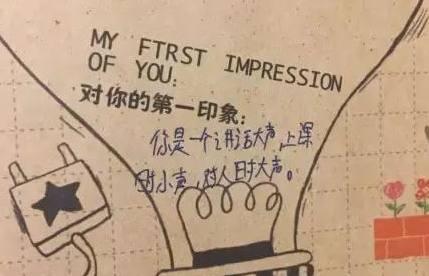 MY FIRST IMPRESSION
OF YOU:
对你的第一印象:
你是一个讲话大声,上课
时小声,对人时大声。